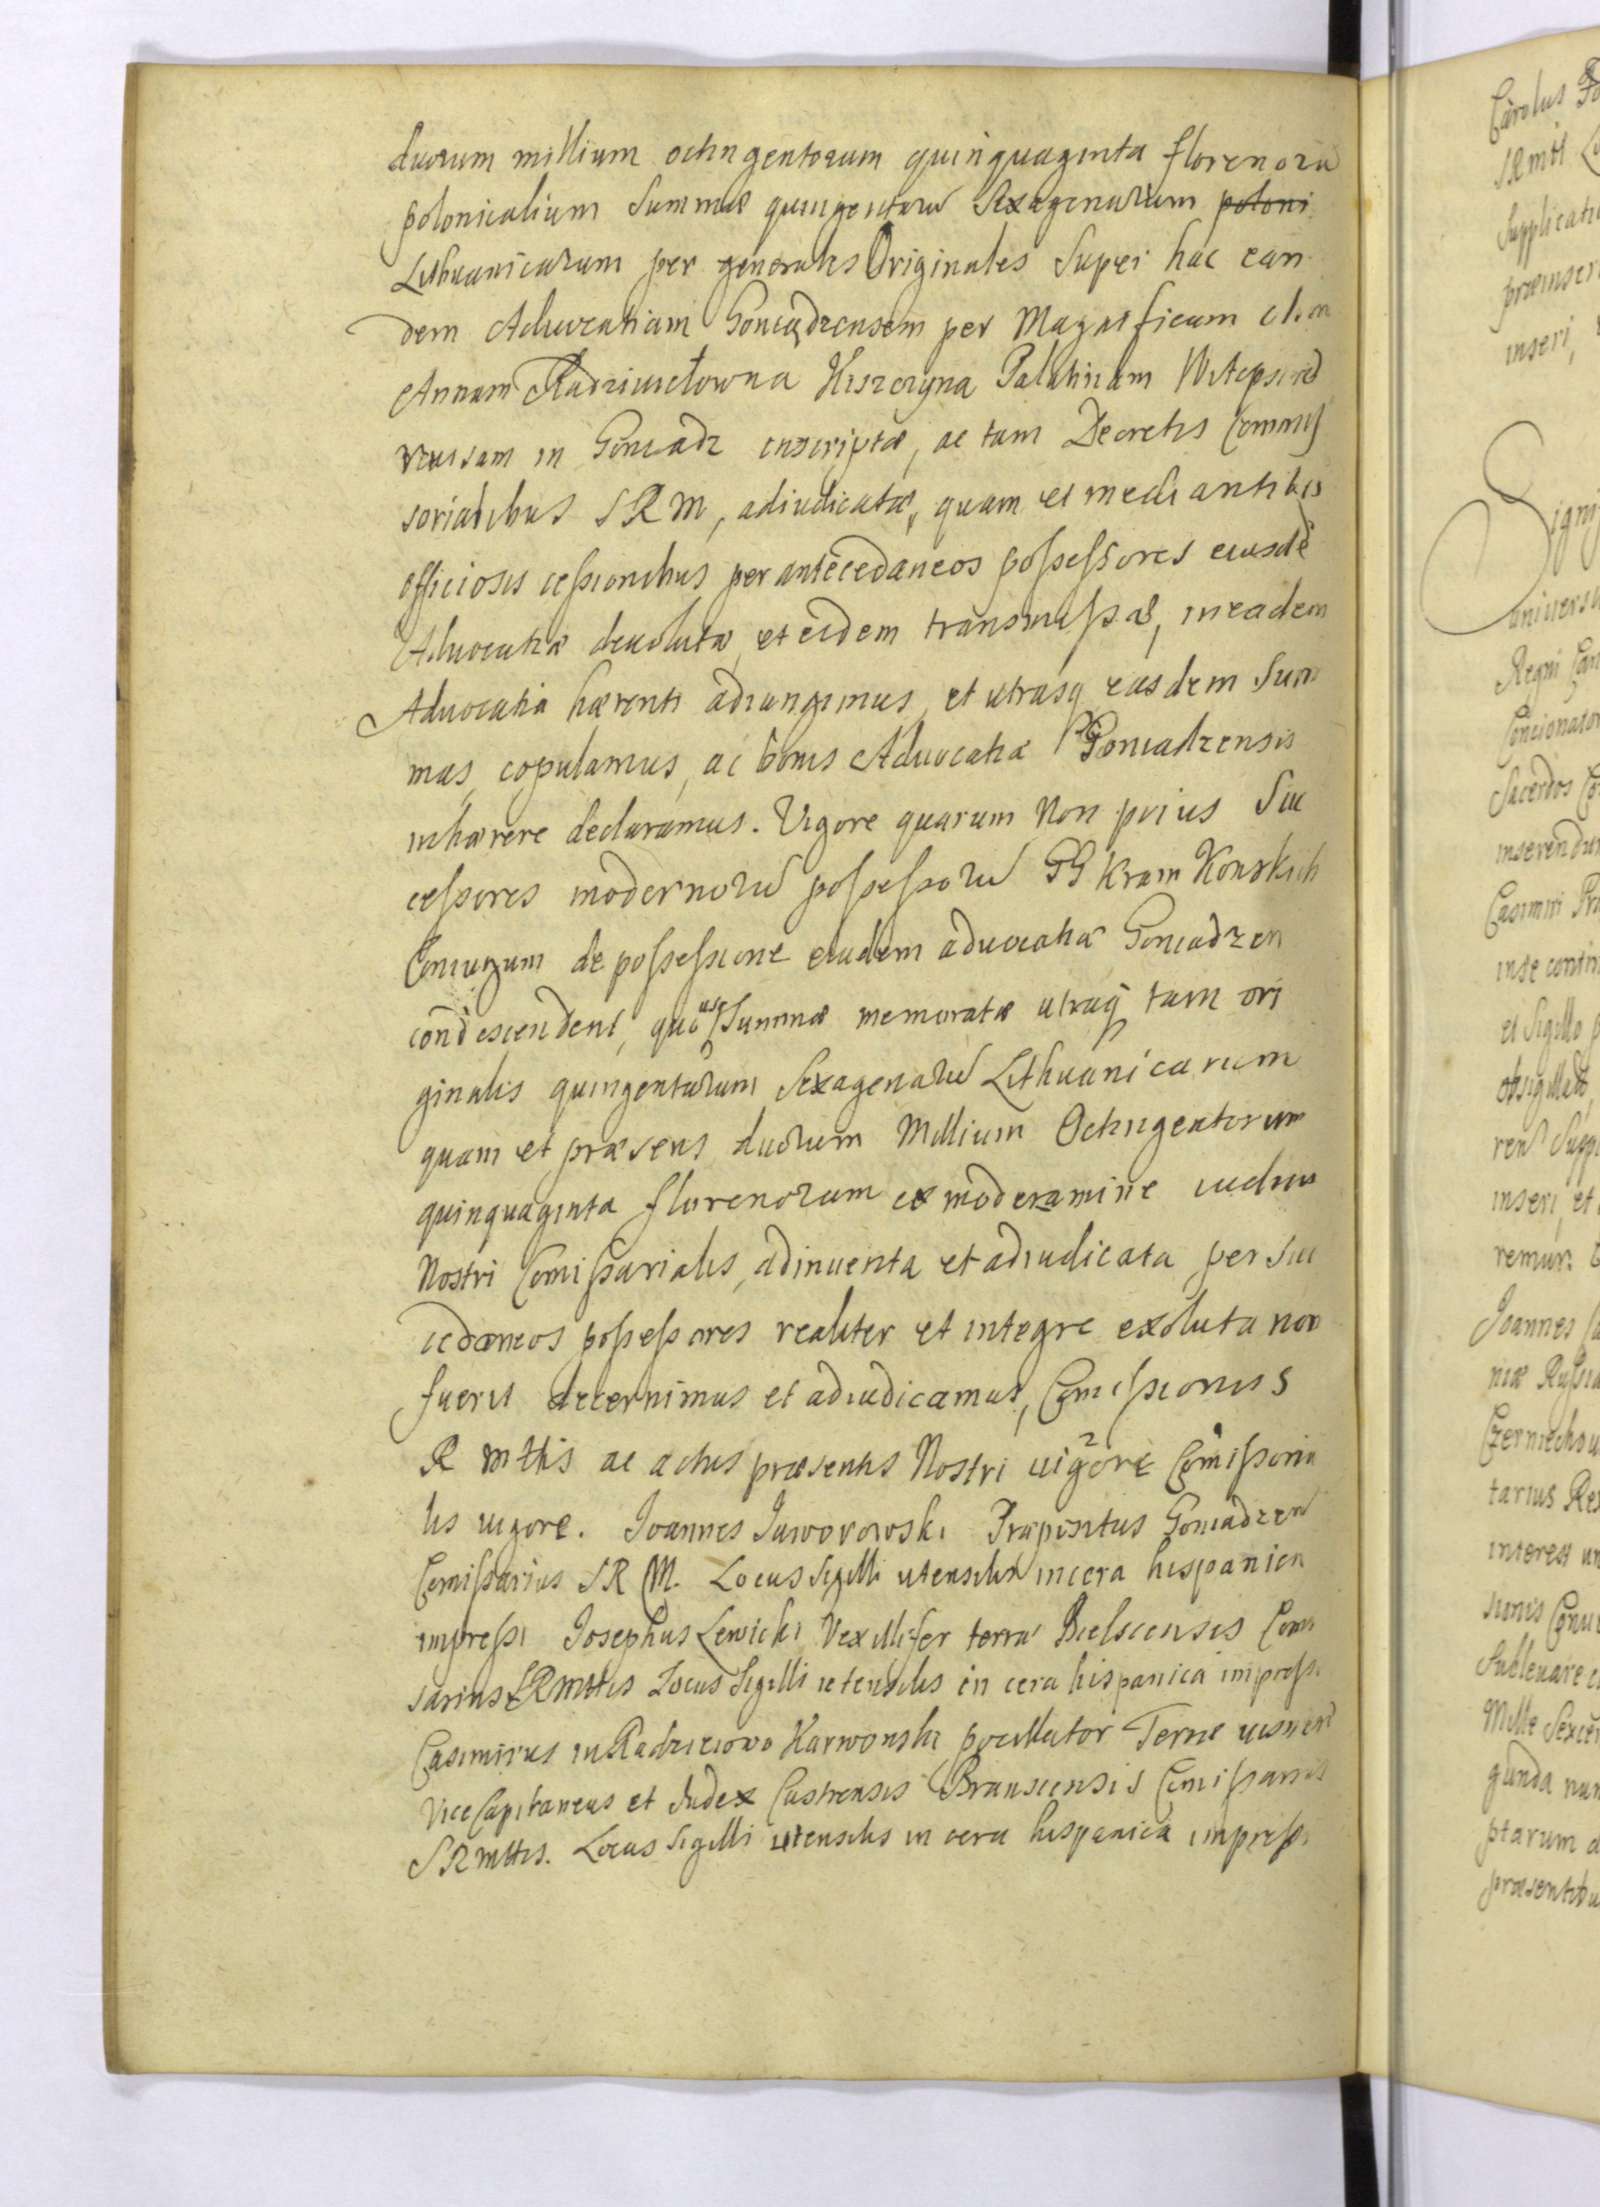 duorum millium octingentorum quinquaginta florenorū
polonicalium Summæ quingentarū Sexagenarum poloni
Lithuanicarum per generales Originales Super hac ean
dem Advocatiam Goniądzensem per Magnificam olim
Annam Radziwiełowna Kiszczyna Palatinam Vitepscen
in Goniadz inscriptæ, ac tam Decretis Commis
sorialibus SRM, adiudicatæ, quam et mediantibus
officiosis cessionibus per antecedaneos possessores eiusdē
Advocatiæ devolutæ, et eidem transmissæ, in eadem
Advocatia hærenti adiungimus, et utrasq easdem Sum
mas, copulamus, ac bonis Advocatiæ Goniadzensis
inhærere declaramus. Vigore quarum Non prius Suc
cessores modernorū possessorū GG Kram Konskich
Coniugum de possessione eiusdem advocatiæ Goniadzen
condescendent, quo usq Summæ memoratæ utraq tam ori
ginalis quingentarum Sexagenarū Lithuanicarum
quam et præsens duorum Millium Octingentorum
quinquaginta florenorum ex moderamine iudicii
Nostri Comissarialis, adinventa et adiudicata per suc
cedaneos possessores realiter et integre exoluta non
fuerit decernimus et adiudicamus, Comissionis S
R Mttis ac actus præsentis Nostri vigore Comissoria
lis vigore. Joannes Jaworowski Præpositus Goniadzen
Comissarius SR M. Locus Sigilli utensilis in cera hispanica
impressi Josephus Lewicki Vexillifer terræ Bielscensis Comi
sarius SRMttis Locus Sigilli utensilis in cera hispanica impressi
Casimirus in Radziciowo Karwowski pocillator Terræ
Vice Capitaneus et Judex Castrensis Branscensis Comissarius
SRMttis. Locus Sigilli utensilis in cera hispanica impressi